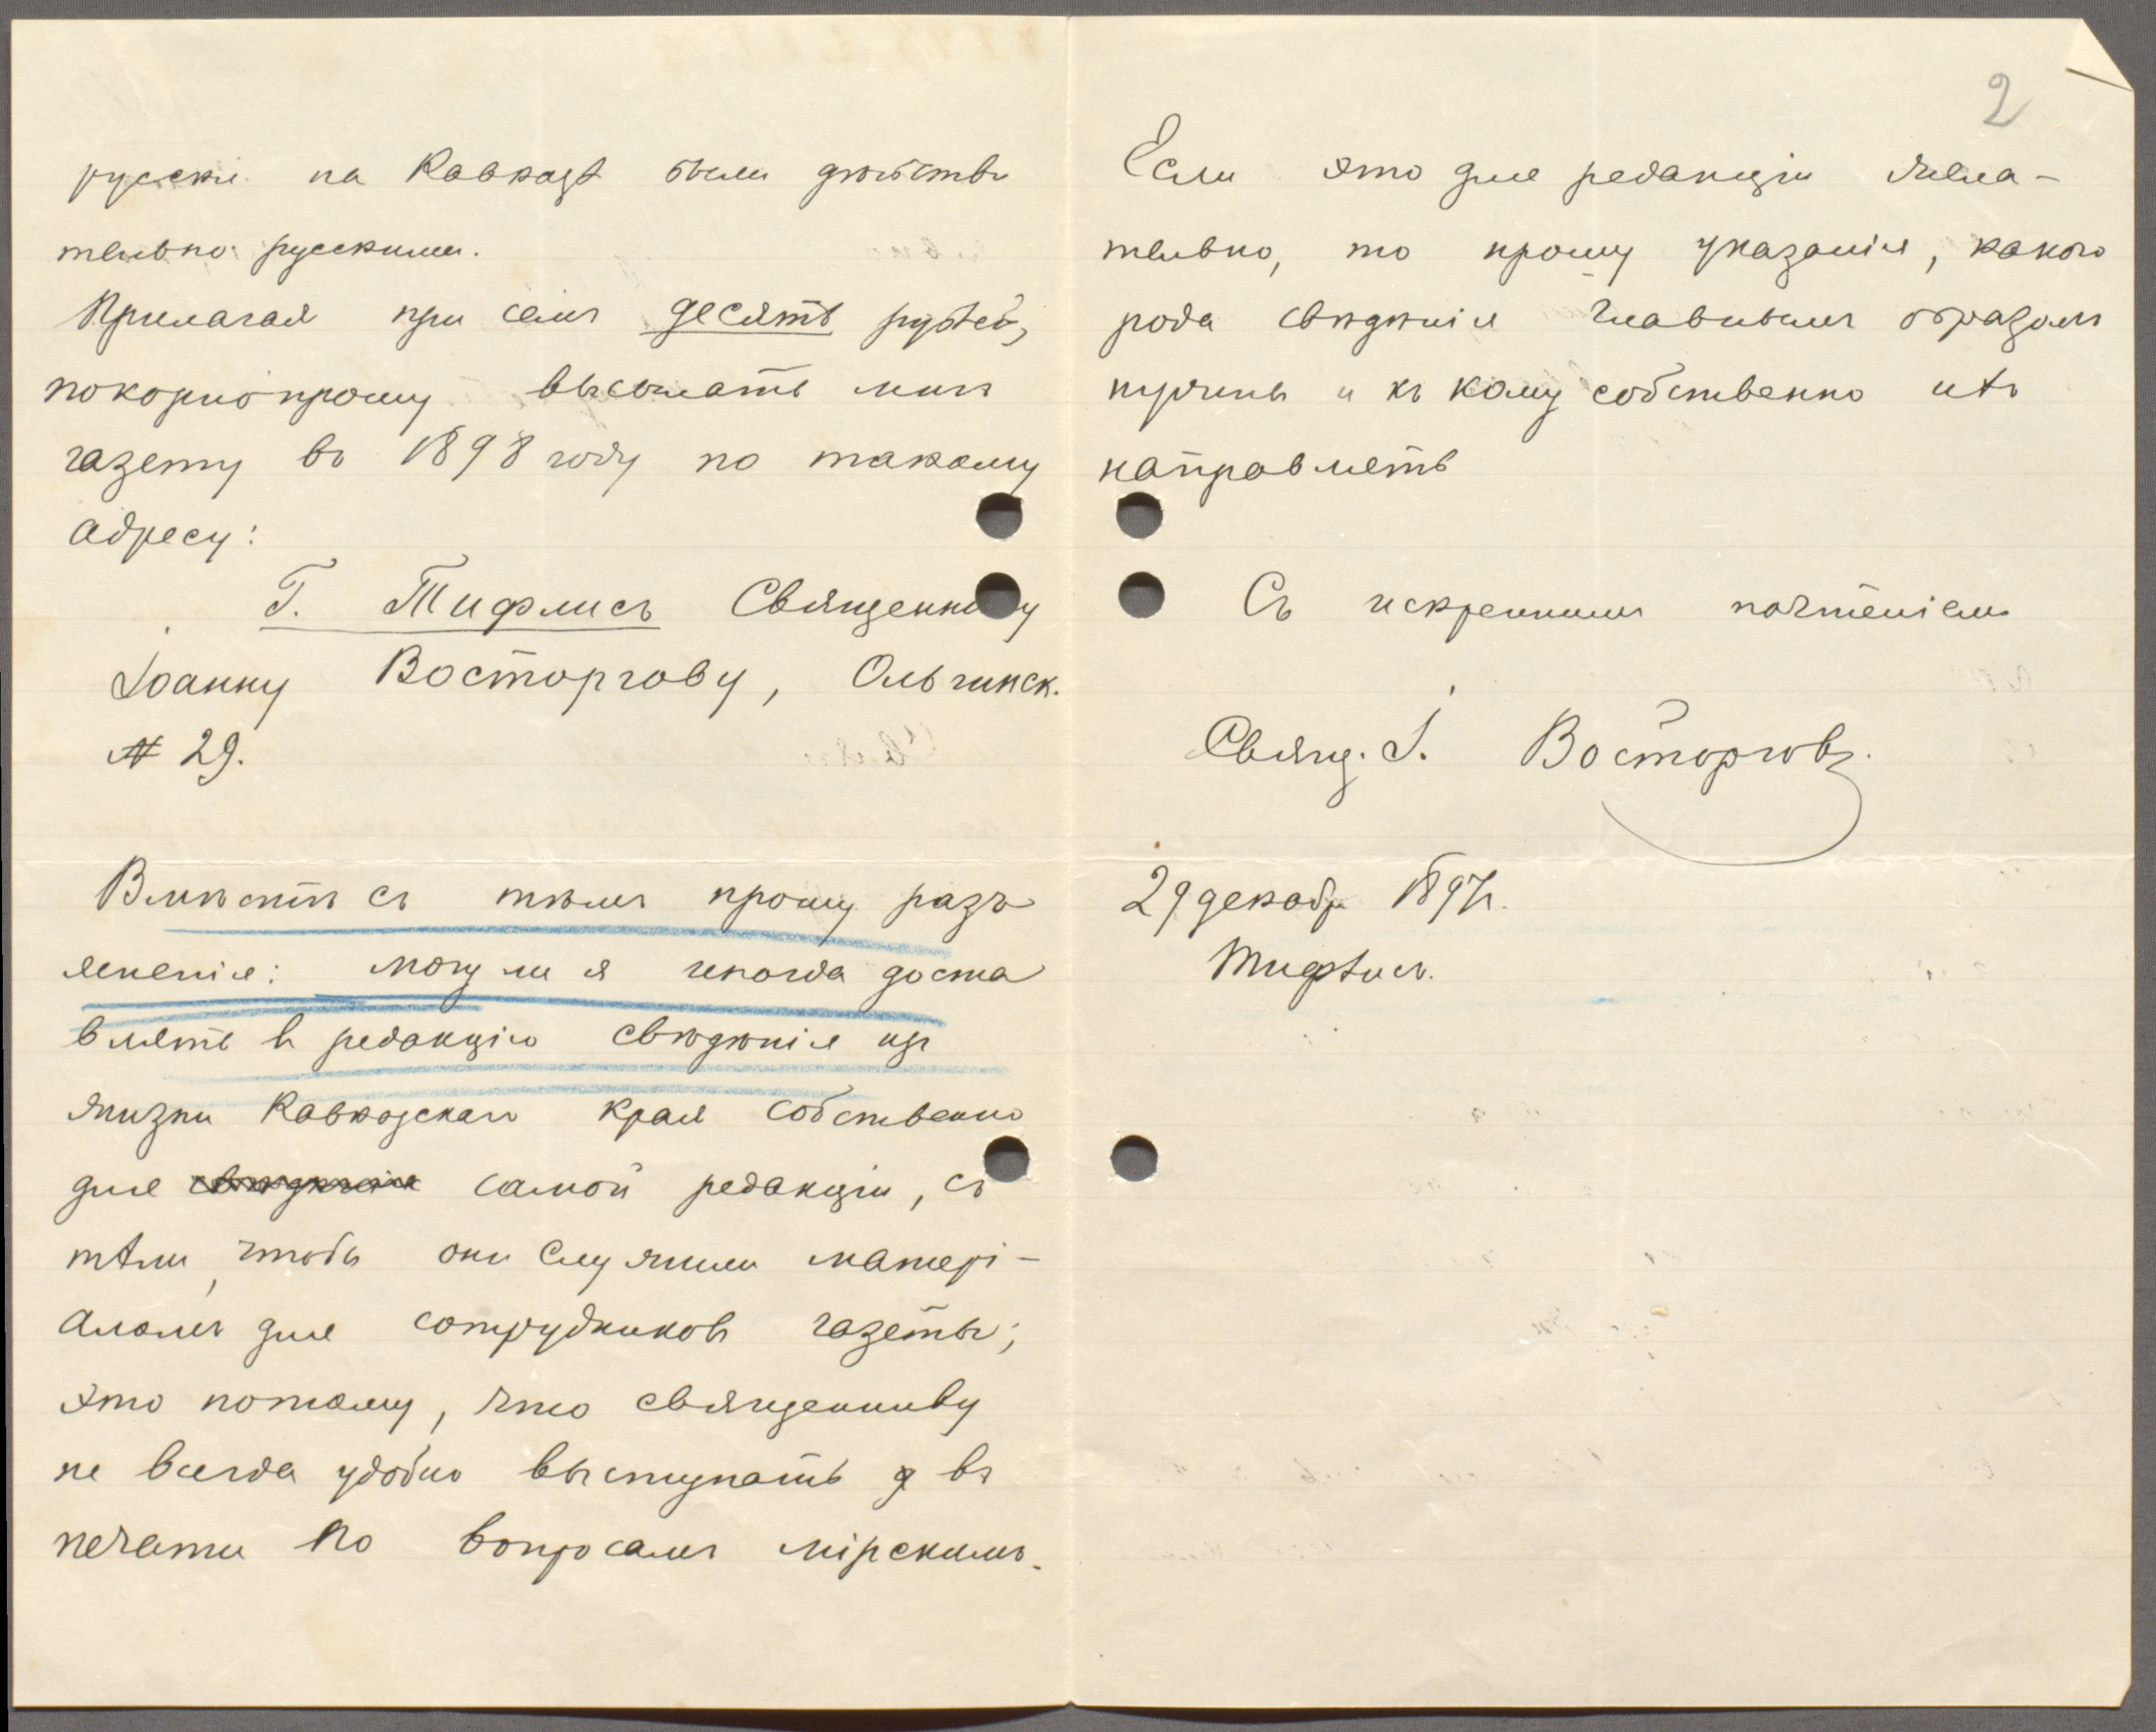 русскіе на Кавказѣ были дѣйстви
тельно русскими.
Прилагая при семъ десять рублей,
покорно прошу высылать мнѣ
газету въ 1898 году по такому
адресу:
Г. Тифлисъ Священнику
Іоанну Восторгову, Ольгинск.
№ 29.
Вмѣстѣ съ тѣмъ прошу разъ
ясненія: могу ли я иногда доста
влять въ редакцію свѣдѣнія изъ
жизни Кавказскаго края собственно
для свѣдѣнія самой редакціи, съ
тѣмъ, чтобы они служили матері-
аломъ для сотрудниковъ газеты;
это потому, что священнику
не всегда удобно выступать въ
печати по вопросамъ мірскимъ.
2
Если это для редакціи жела-
тельно, то прошу указанія, какого
рода свѣдѣнія главнымъ образомъ
нужны и къ кому собственно ихъ
направлять
Съ искреннимъ почтеніемъ
Свящ. І. Восторговъ.
29 декабр 1897г.
Тифлисъ.